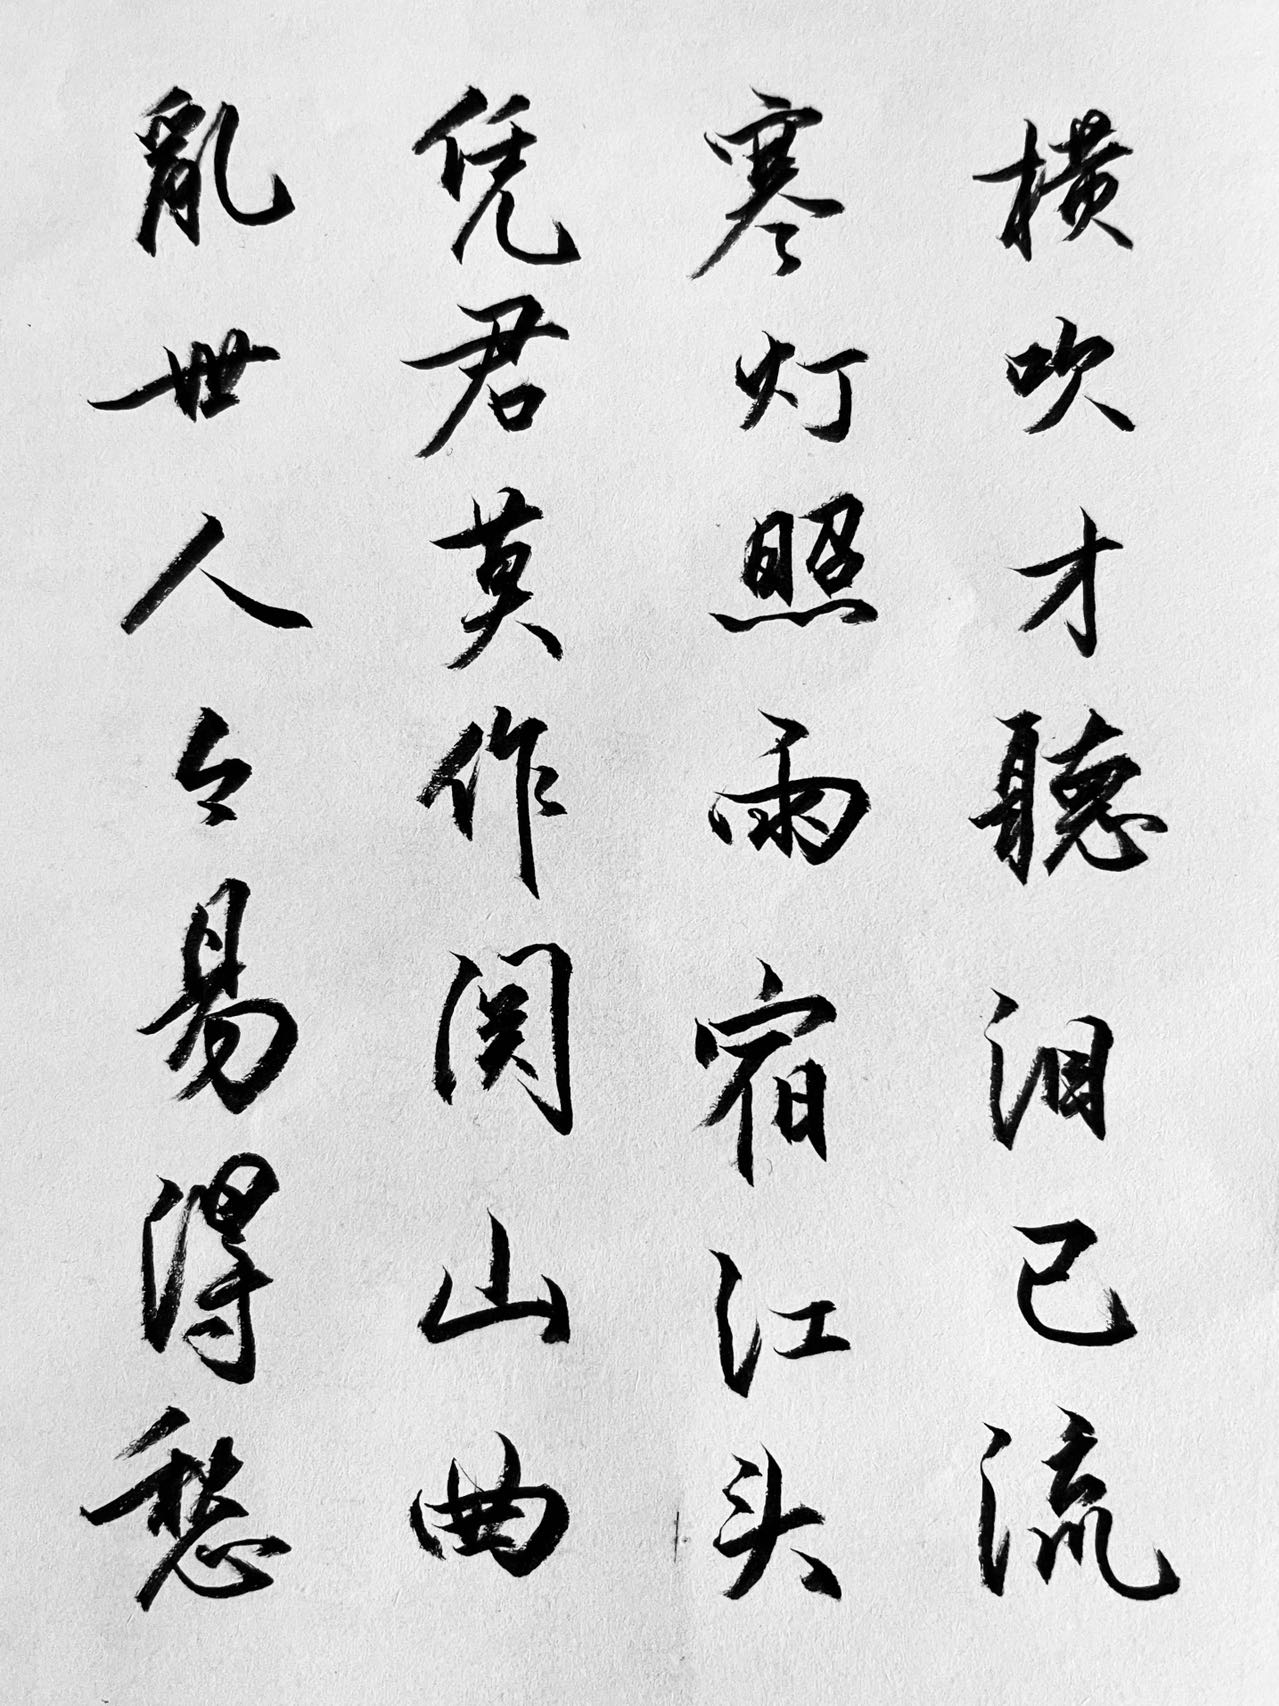 横吹才聽泪已流
寒灯照雨宿江头
凭君莫作関山曲
亂世人々易得愁